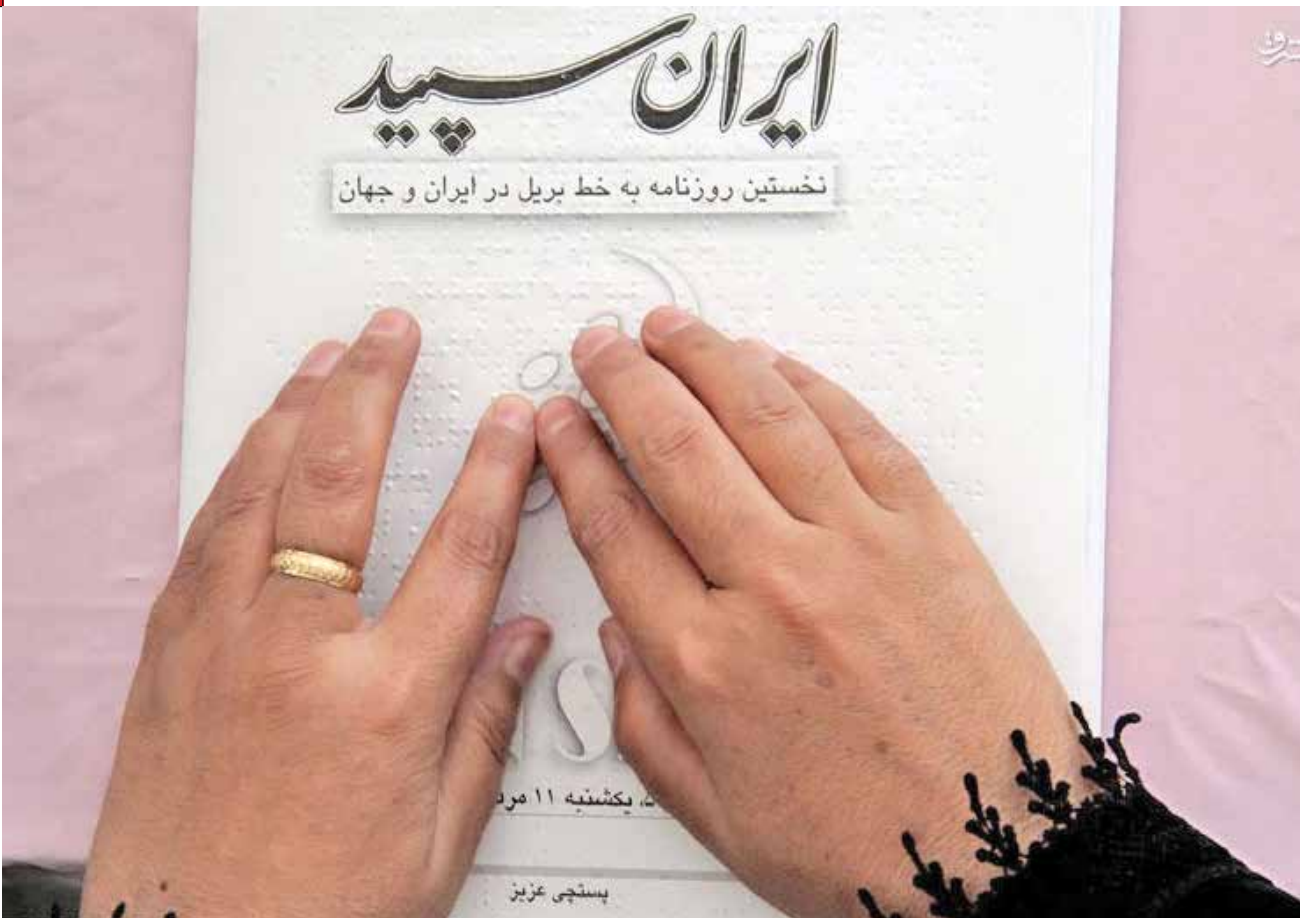 ایران سپید
نخستین روزنامه به خط بریل در ایران و جهان
S
یکشنبه ۱۱
پستچی عزیز